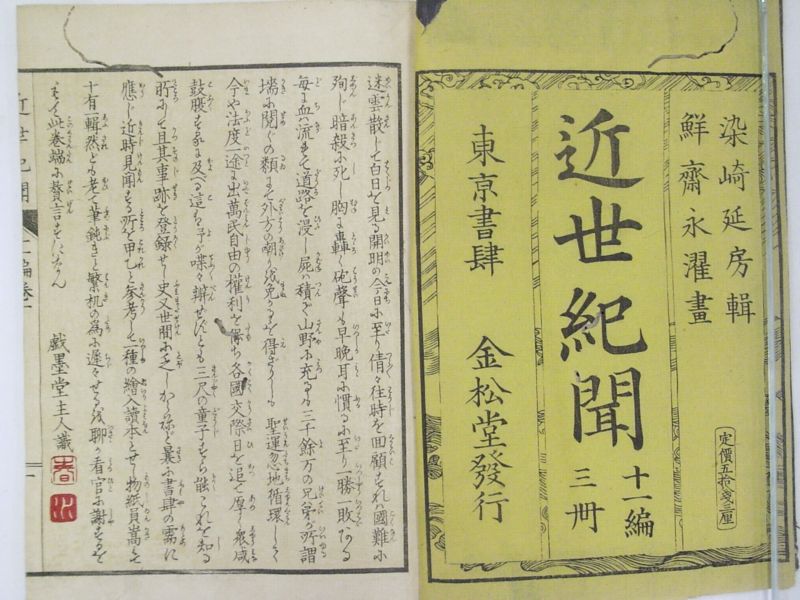 染崎延房輯
鮮齋永濯畫
定價五拾錢三厘
近世紀聞
十一編
三冊
東京書肆
金松堂發行
迷雲散して白日を見る開明の今日に至り倩々往時を回顧すれバ國難に
殉じ暗殺に死し胸に轟く砲聲も早晩耳に慣るゝに至り一勝一敗ある
毎に血流れて道路を浸し屍ハ積で山野に充るも三千餘万の兄弟が所謂
墻に鬩ぐの類にて外方の嘲りを免るゝを得ざりしも
聖運忽地循環して
今や法度一途に出萬民自由の權利を保ち各國交際日を追て厚く衆咸
鼓腹する
這ハ予が喋々辯ぜずとも三尺の童子すら
知る
所にて且其事跡を登録せし史又世間に乏しからねど曩に書肆の需に
應じ近時見聞する所の甲乙を參考して一種の繪入讀本とせし物紙員嵩て
十有一輯然ども老て筆鈍きと繁机の為に遲々せるを聊か看官に謝するを
此巻端に贅言すになん
戯墨堂主人識
春水
近世紀聞
十一編巻一